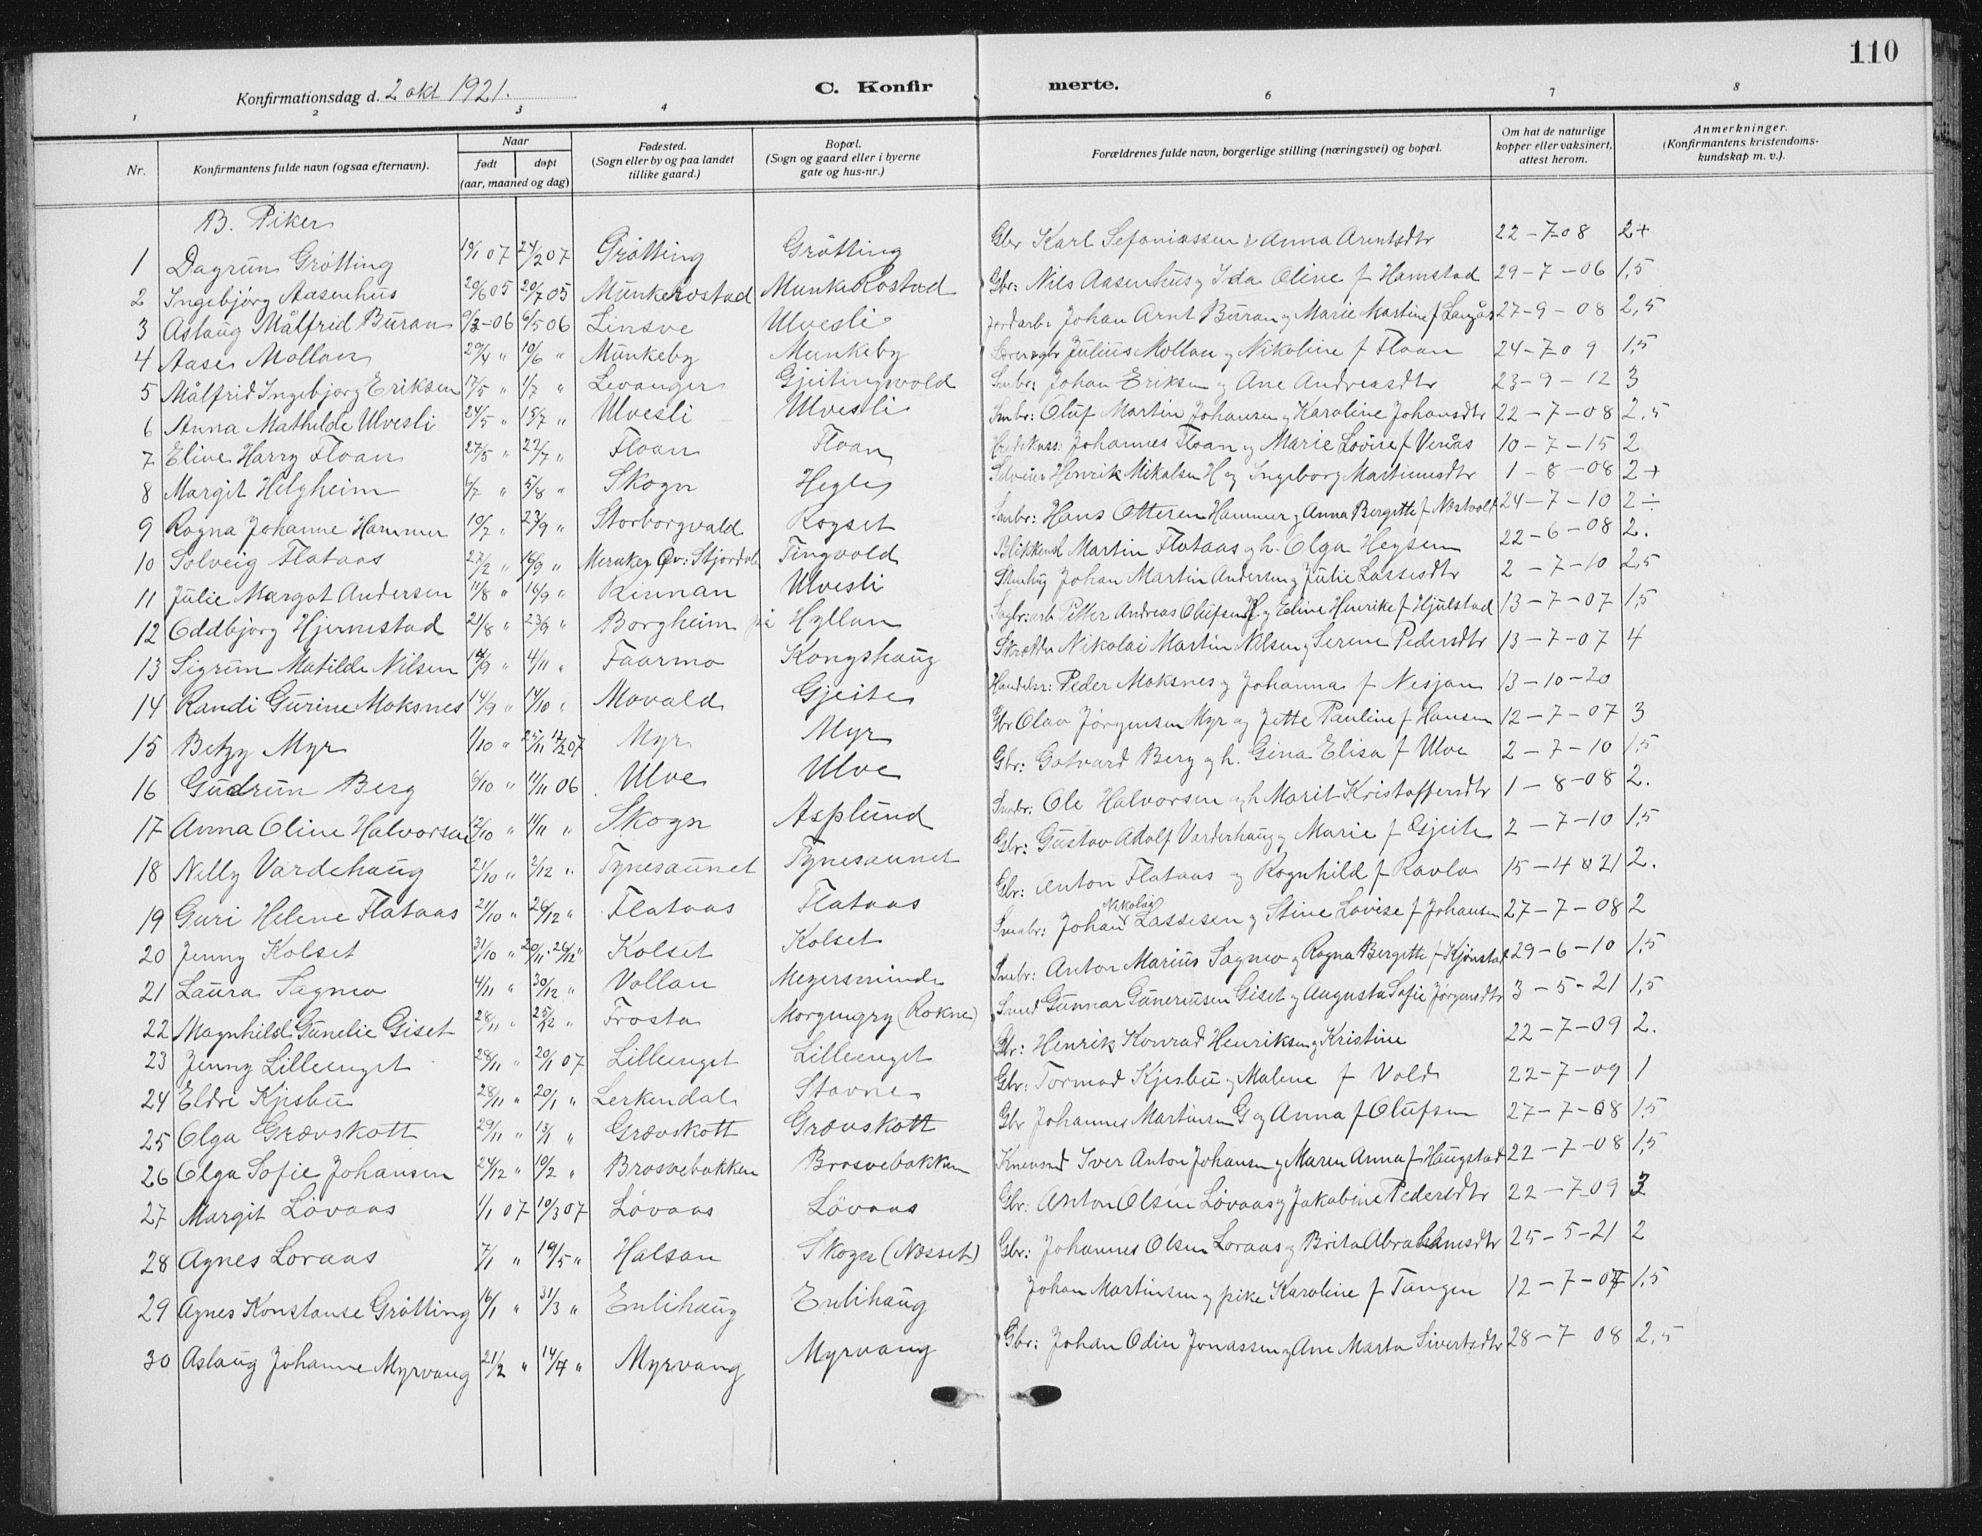 110
Konfirmationsdag d. 2 okt 1921.
C. Konfirmerte.
1 2 3 4 6 7 8
Nr. Konfirmantens fulde navn (ogsaa efternavn). Naar født døpt (aar, maaned og dag) Fødested. (Sogn eller by og paa landet tillike gaard.) Bopæl. (Sogn og gaard eller i byerne gate og hus-nr.) Forældrenes fulde navn, borgerlige stilling (næringsvei) og bopæl. Om hat de naturlige kopper eller vaksinert, attest herom. Anmerkninger. (Konfirmantens kristendomskundskap m. v.).
B. Piker
1 Dagrun Grötting 07 24/2 07 Grötting Grötting Gbr Karl Sefaniassen & Anna Arentsdtr 22-7-08 2+
2 Ingebjörg Aasenhus 05 20/7 05 Munkerostad Munkerostad Gbr: Nils Aasenhus og Ida Oline f Hamstad 29-7-06 1,5
3 Aslaug Målfrid Buran 06 6/5 06 Linsve Ulvesli Jordarb: Johan Arnt Buran og Marie Martine f Langås 27-9-08 2,5
4 Aase Mollan 29/4 " 10/6 " Munkeby Munkeby Julius Mollan og Nikoline f Floan 24-7 09 1,5
5 Målfrid Ingebjørg Eriksen 17/5 " 1/7 " Levanger Gjeitingsvold Smbr: Johan Eriksen og Ane Andreasdtr 23-9-12 3
6 Anna Mathilde Ulvesli 24/5 " 15/7 " Ulvesli Ulvesli Smbr: Oluf Martin Johansen og Karoline Johansdtr 22-7-08 2,5
7 Eline Harry Floan 27/5 " 22/7 " Floan Floan Johannes Floan og Marie Lovise f Venås 10-7-15 2
8 Margit Helgheim 6/7 " 5/8 " Skogn Hegle Henrik Mikalsen H og Ingeborg Martinusdtr 1-8-08 2+
9 Ragna Johanne Hammer 10/7 " 23/9 " Storborgvald Rogset Smbr: Hans Ottesen Hammer og Anna Bergitte f Nestvold 24-7-10 2÷
10 Solveig Flataas " 16/9 " Meraker Öv: Stjørdal Tingvold Blikkensl Martin Flataas og h. Olga Heysen 22-6-08 2.
11 Julie Margot Andersen 11/8 " 16/9 " Rinnan Ulvesli Johan Martin Andersen og Julie Lassesdtr 2-7-10 2,5
12 Oddbjörg Hjermstad 21/8 " 23/9 " Borgheim på Hyllan Sagbr:arb Petter Andreas Olufsen H og Eline Henrike f Hjulstad 13-7-07 1,5
13 Sigrun Matilde Nilsen " 4/11 " Faarmo Kongshaug Skrædder Nikolai Martin Nilsen og Serine Pedersdtr 13-7-07 4
14 Randi Gurine Moksnes 14/9 " 14/10 " Movald Gjeite Handelsr: Peder Moksnes og Johanna f Nesjan 13-10-20
15 Betzy Myr 1/10 " 25/11 17/2 07 Myr Myr Gbr Olav Jörgensen Myr og Jette Pauline f Hansen 12-7-07 3
16 Gudrun Berg 6/10 " 11/11 06 Ulve Ulve Gbr: Gotvard Berg og h. Gina Elisa f Ulve 2-7-10 1,5
17 Anna Oline Halvorsen 12/10 " 11/11 " Skogn Asplund Smbr: Ole Halvorsen og h Marit Kristoffersdtr 1-8-08 2.
18 Nelly Vardehaug 21/10 " 2/12 " Tynesaunet Tynesaunet Gbr: Gustav Adolf Varderhaug og Marie f Gjeite 2-7-10 1,5
19 Guri Helene Flataas 21/10 " 26/12 " Flataas Flataas Gbr: Anton Flataas og Ragnhild f Ravlo 15-4 21 2.
20 Jenny Kolset 31/10 " 20/11 26/12 " Kolset Kolset Smabr: Johan Nikolai Lassesen og Stine Lovise f Johansen 27-7-08 2
21 Laura Sagmo 4/11 " 30/12 " Vollan Meyersminde Smbr: Anton Marius Sagmo og Ragna Bergitte f Kjönstad 29-6-10 1,5
22 Magnhild Gunelie Giset 28/11 " 25/12 " Frosta Morgengry (Rokne) Smed Gunnar Guneriusen Giset og Augusta Sofie Jörgensdtr 3-5-21 1,5
23 Jenny Lilleenget 28/11 " 20/1 07 Lilleenget Lilleenget Gbr: Henrik Konrad Henriksen og Kristine 22-7-09 2.
24 Eldri Kjesbu 28/11 " 20/1 " Lerkendal Stavne Gbr: Tormod Kjesbu og Malene f Vold 22-7-09 1
25 Olga Grævskott 29/11 " 13/1 " Grævskott Grævskott Gbr Johannes Martinsen G og Anna f Olufsen 27-7-08 1,5
26 Olga Sofie Johansen 24/12 " 10/2 " Brasvebakken Brasvebakken Iver Anton Johansen og Maren Anna f Haugstad 22-7-08 1,5
27 Margit Lövaas 1/1 07 10/3 07 Lövaas Lövaas Gbr: Anton Olsen Lövaas og Jakobine Pedersdtr 22-7-09 3
28 Agnes Loraas 7/1 " 19/5 " Halsan Skogn (Nosset) Gbr: Johannes Olsen Loraas og Brita Abrahamsdtr 25-5-21 2
29 Agnes Konstanse Grötting 16/1 " 31/3 " Enlihaug Enlihaug Johan Martinsen og pike Karoline f Tangen 12-7-07 1,5
30 Aslaug Johanne Myrvang 21/2 " 14/4 " Myrvang Myrvang Gbr: Johan Odin Jonassen og Ane Marta Sivertsdtr 28-7 08 2,5